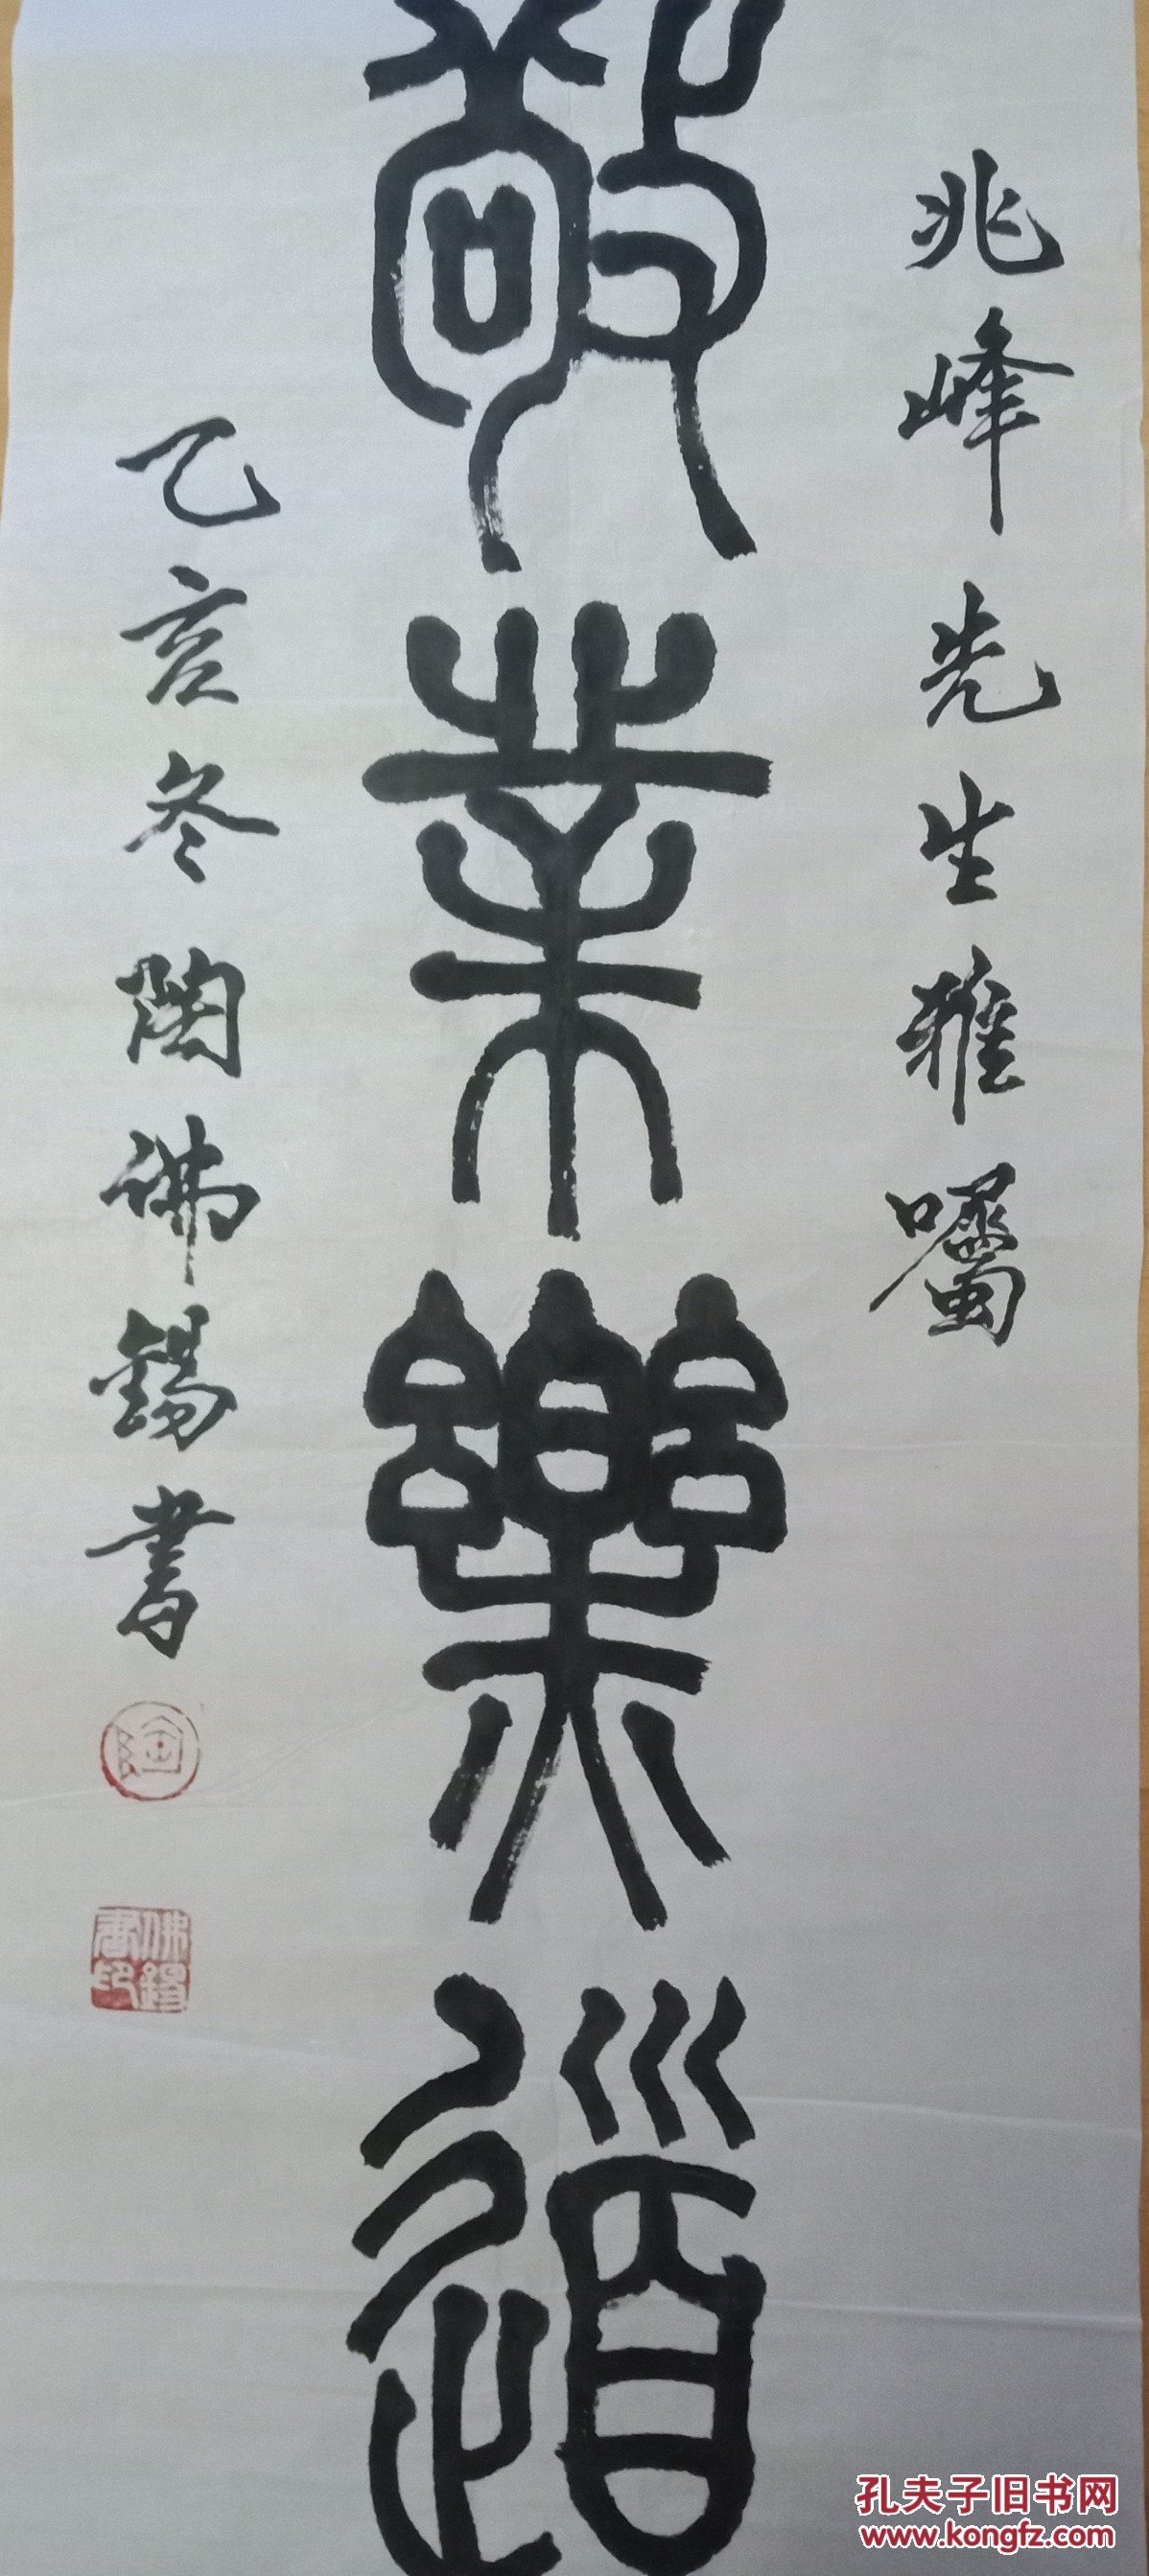 兆峰先生雅嘱
敬業樂道
乙亥冬陶佛锡書
陶
佛錫書印
孔夫子旧书网
www.kongfz.com